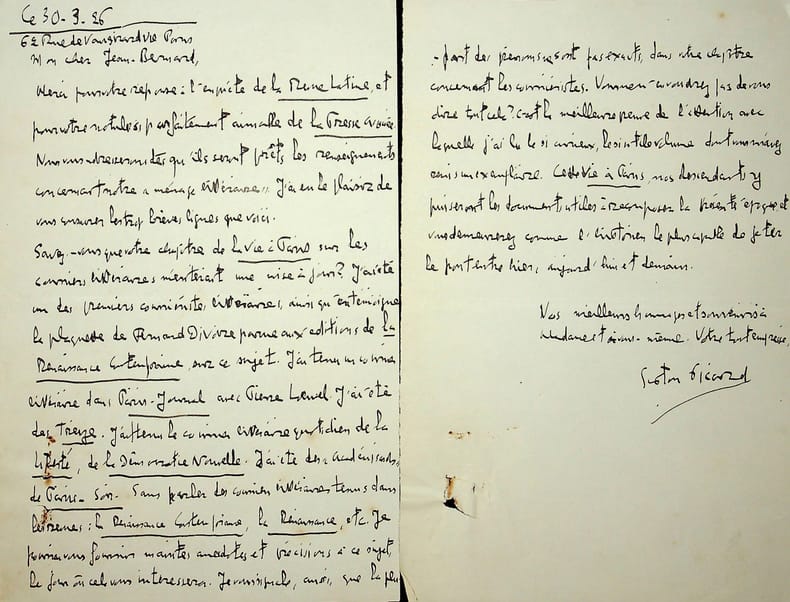 Ce 30-3-26
62 Rue de Vaugirard VIe Paris
Mon cher Jean-Bernard,
Merci pour votre réponse à l'enquête de la Revue Latine, et
pour votre notule si parfaitement aimable de la Presse
Nous vous adresserons dès qu'ils seront prêts les renseignements
concernant notre « ménage littéraire ». J'ai eu le plaisir de
vous consacrer les trop brèves lignes que voici.
Savez-vous que votre chapitre de la Vie à Paris sur les
courriers littéraires mériterait une mise à jour? J'ai été
un des premiers courriéristes littéraires, ainsi qu'en témoigne
la plaquette de Fernand Divoire parue aux éditions de la
Renaissance Contemporaine, sur ce sujet. J'ai tenu un courrier
littéraire dans Paris-Journal avec Pierre J'ai été
des Treize. J'ai tenu le courrier littéraire quotidien de la
Liberté, de la Démocratie Nouvelle. J'ai été des Académisards
de Paris-Soir. Sans parler des courriers littéraires tenus dans
les revues: la Renaissance Contemporaine, la Renaissance, etc. Je
pourrai vous fournir maintes anecdotes et précisions à ce sujet,
le jour où cela vous intéressera. Je vous signale, aussi, que la plu
-part des prénoms ne sont pas exacts, dans votre chapitre
concernant les courriéristes. Vous ne m'en voudrez pas de vous
dire tout cela? C'est la meilleure preuve de l'attention avec
laquelle j'ai lu le si curieux, le si utile volume dont vous m'avez
envoyé un exemplaire. Cette Vie à Paris, nos descendants y
puiseront les documents utiles à recomposer la présente époque, et
vous demeurerez comme l'historien le plus capable de jeter
le pont entre hier, aujourd'hui et demain.
Nos meilleurs hommages et souvenirs à
Madame et à vous-même. Votre tout empressé,
Gaston Picard